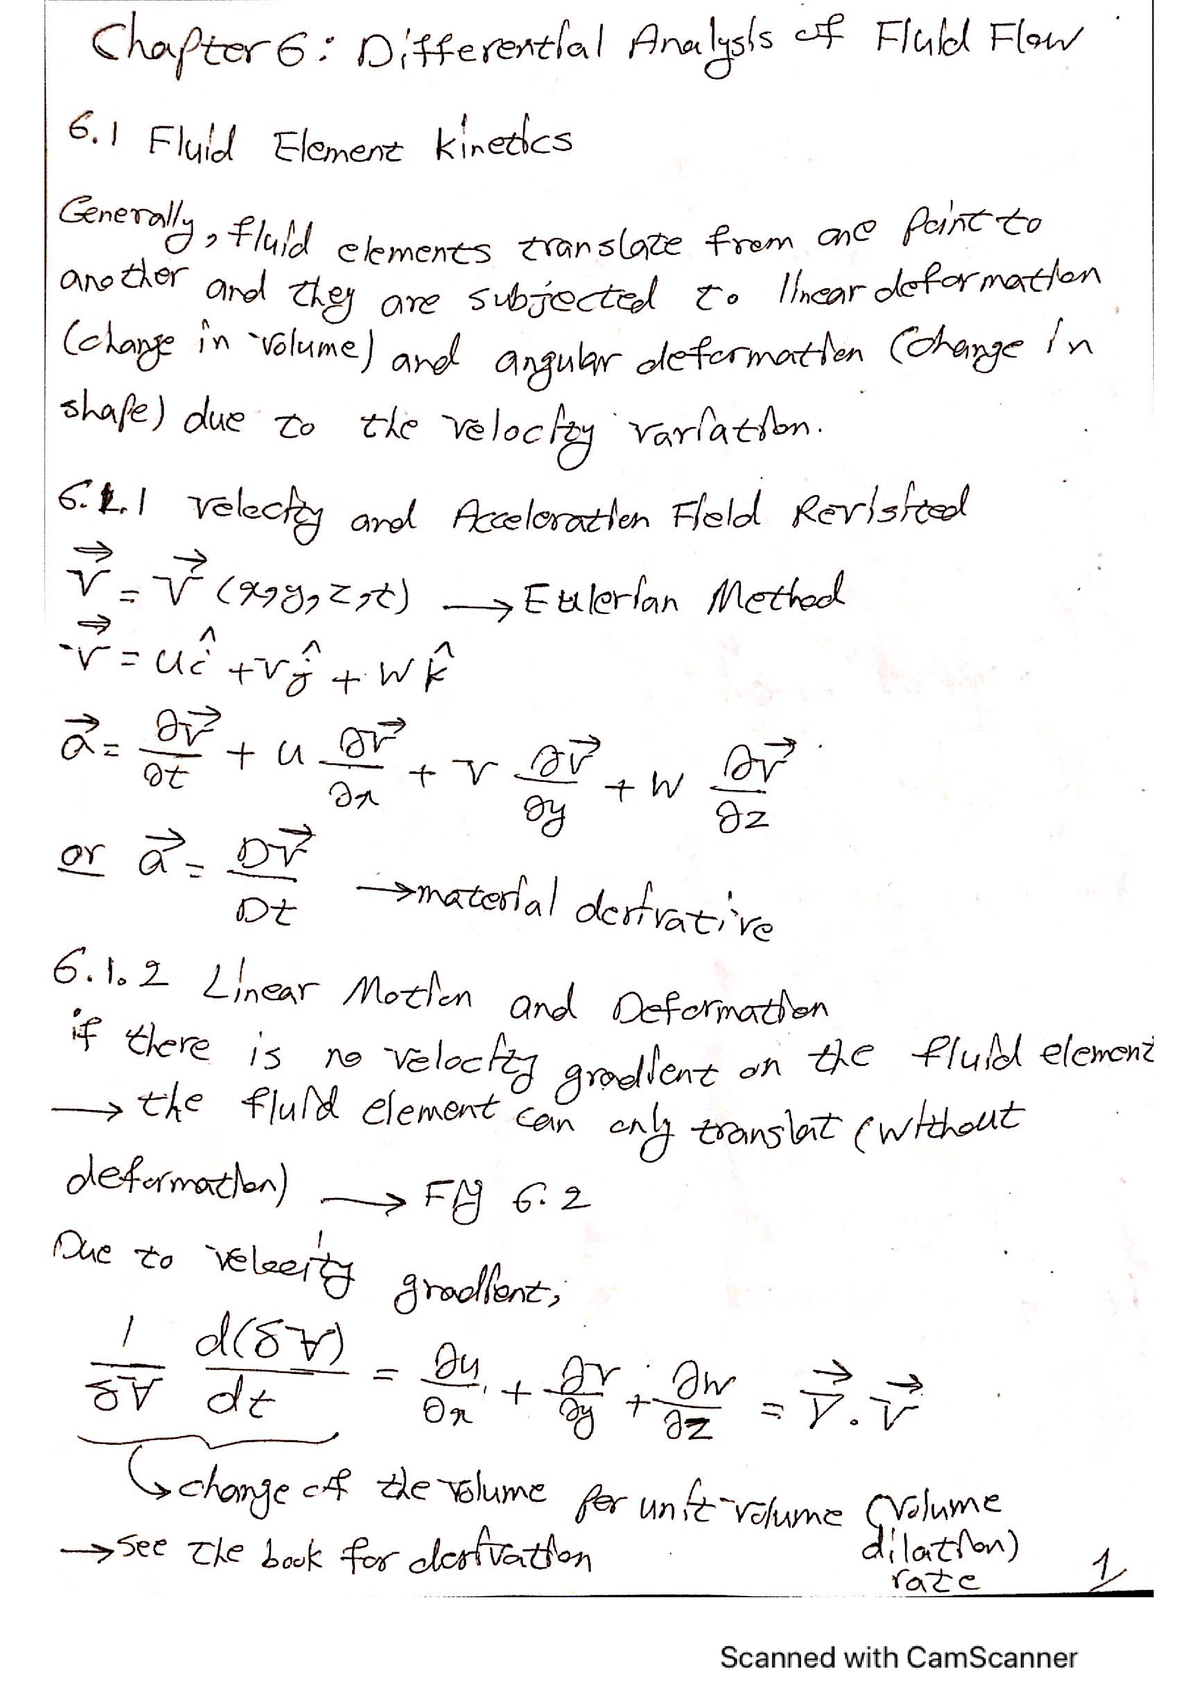 Chapter 6: Differential Analysis of Fluid Flow
6.1 Fluid Element kinetics
Generally, fluid elements translate from one point to
another and they are subjected to linear deformation
(change in volume) and angular deformation (change in
shape) due to the velocity variation.
6.1.1 Velocity and Acceleration Field Revisited
V⃗ = V⃗ (x,y,z,t) → Eulerian Method
V⃗ = uî + vĵ + wk̂
a⃗ = ∂V⃗/∂t + u ∂V⃗/∂x + v ∂V⃗/∂y + w ∂V⃗/∂z
or a⃗ = DV⃗/Dt → material derivative
6.1.2 Linear Motion and Deformation
if there is no velocity gradient on the fluid element
→ the fluid element can only translat (without
deformation) → Fig 6.2
Due to velocity gradient,
1/δV d(δV)/dt = ∂u/∂x + ∂v/∂y + ∂w/∂z = ∇⃗.V⃗
↳ change of the volume per unit volume (volume
dilation)
rate
→ see the book for derivation
1
Scanned with CamScanner